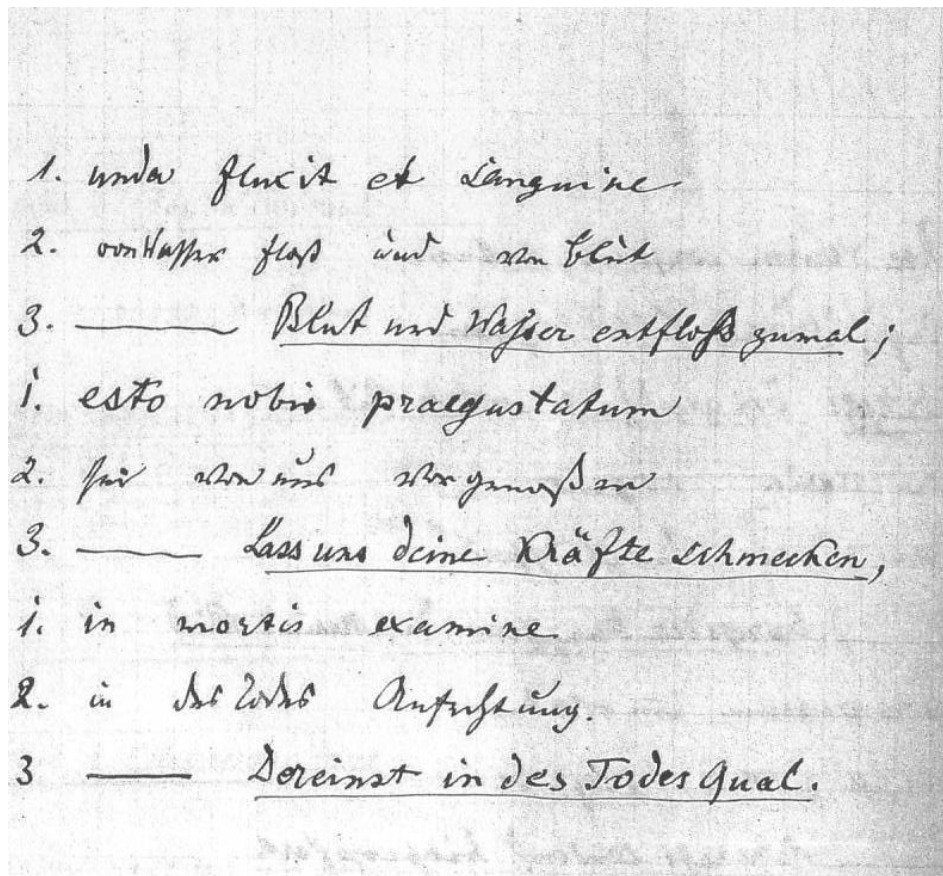 1. unda fluxit et sanguine
2. von Wasser floß und von Blut
3. Blut und Wasser entfloß zumal;
1. esto nobis praegustatum
2. sei von uns vorgenoßen
3. Lass uns deine Kräfte schmecken,
1. in mortis examine
2. in des Todes Anfechtung.
3 Dereinst in des Todes Qual.